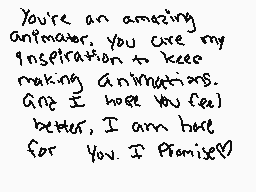 You're an amazing
animator. you are my
inspiration to keep
making animations.
and I hope you feel
better, I am here
for you. I Promise♡